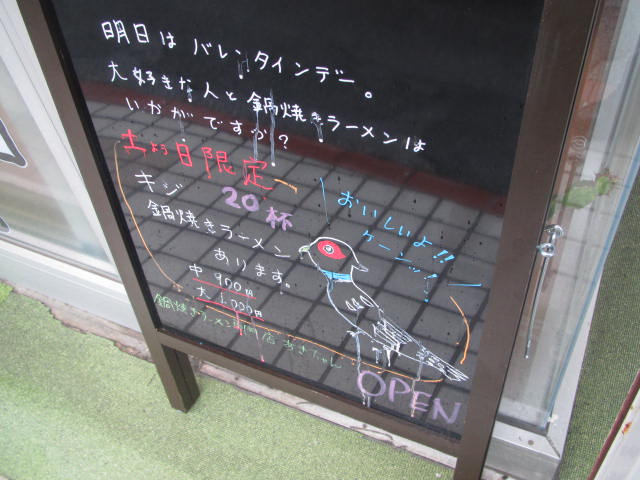 明日は バレンタインデー。
大好きな人と 鍋焼きラーメンは
いかがですか?
土よう日限定
キジ
20杯
鍋焼きラーメン
あります。
中 900円
大 1,000円
おいしいよ!!
ケーンッ!
鍋焼きラーメン専門店 あきちゃん
OPEN